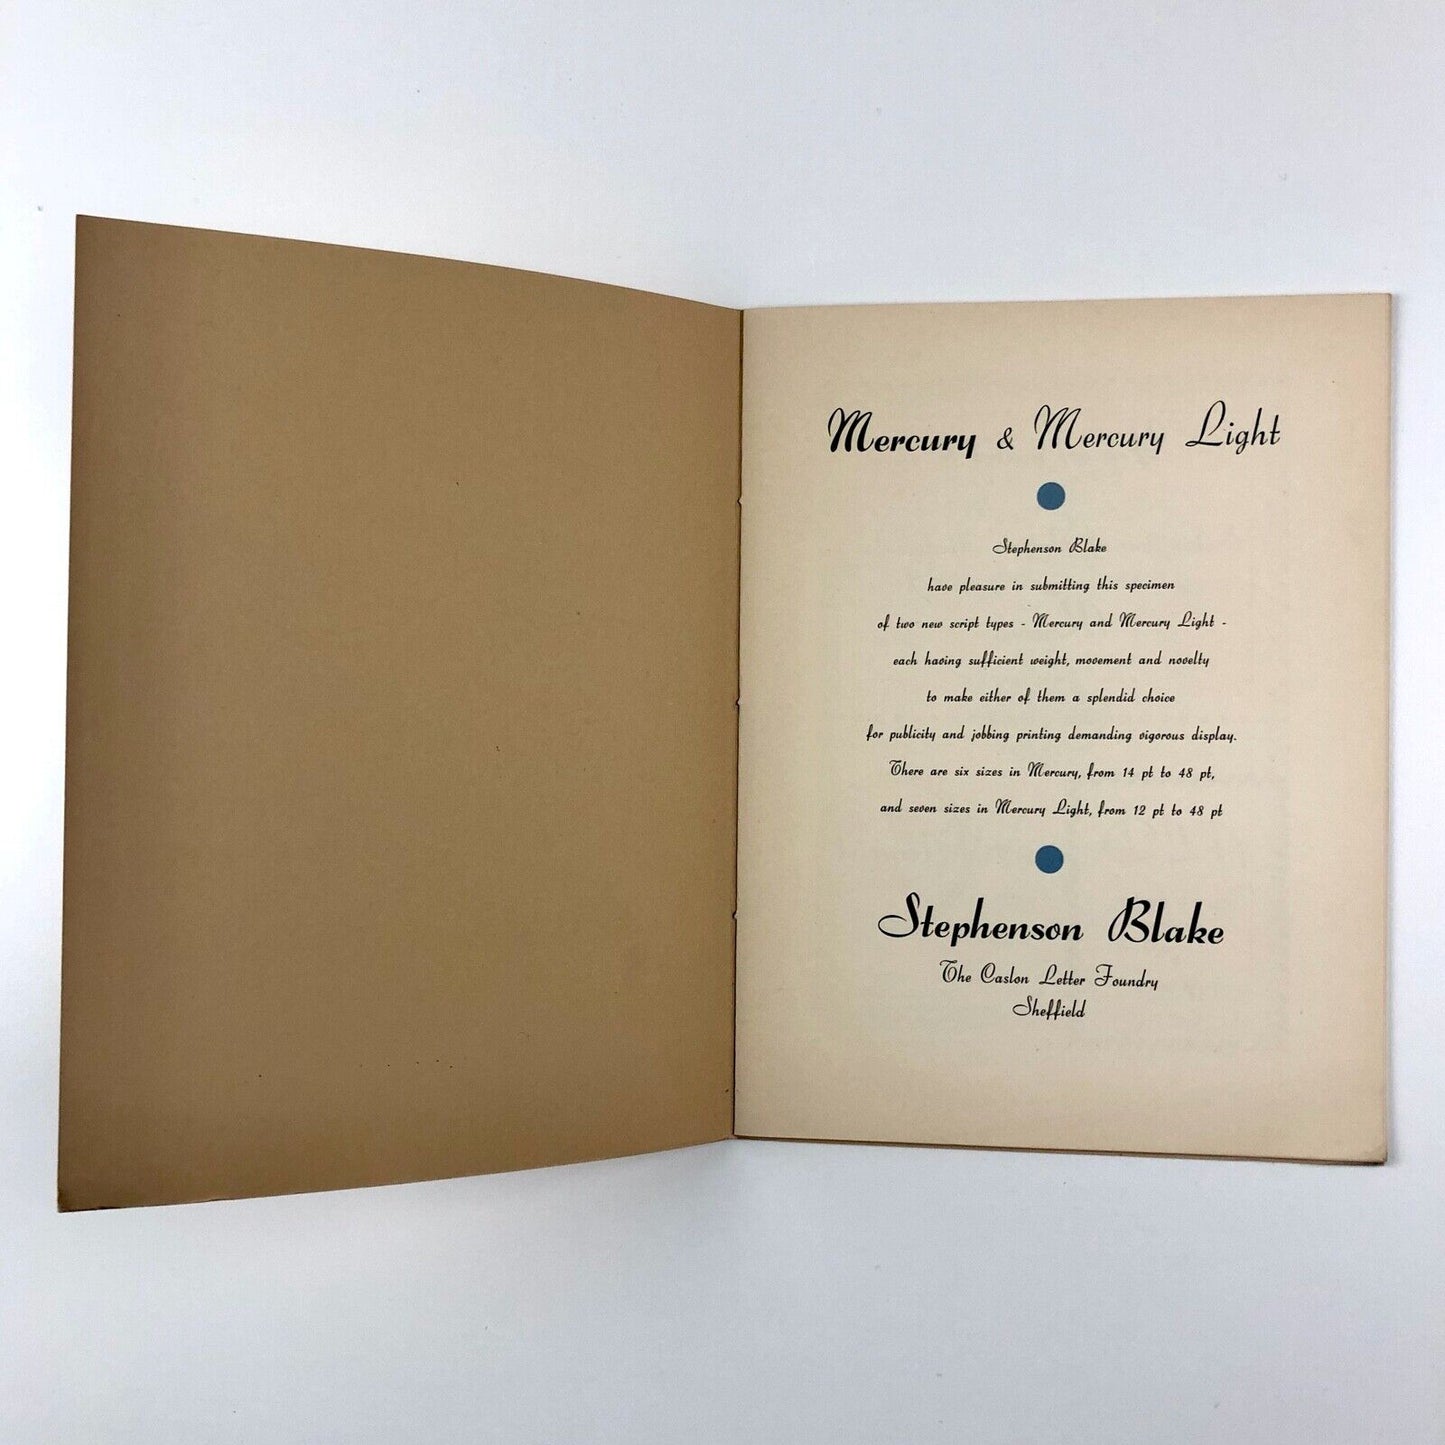 Mercury & Mercury Light
Stephenson Blake
have pleasure in submitting this specimen
of two new script types - Mercury and Mercury Light -
each having sufficient weight, movement and novelty
to make either of them a splendid choice
for publicity and jobbing printing demanding vigorous display.
There are six sizes in Mercury, from 14 pt to 48 pt,
and seven sizes in Mercury Light, from 12 pt to 48 pt
Stephenson Blake
The Caslon Letter Foundry
Sheffield